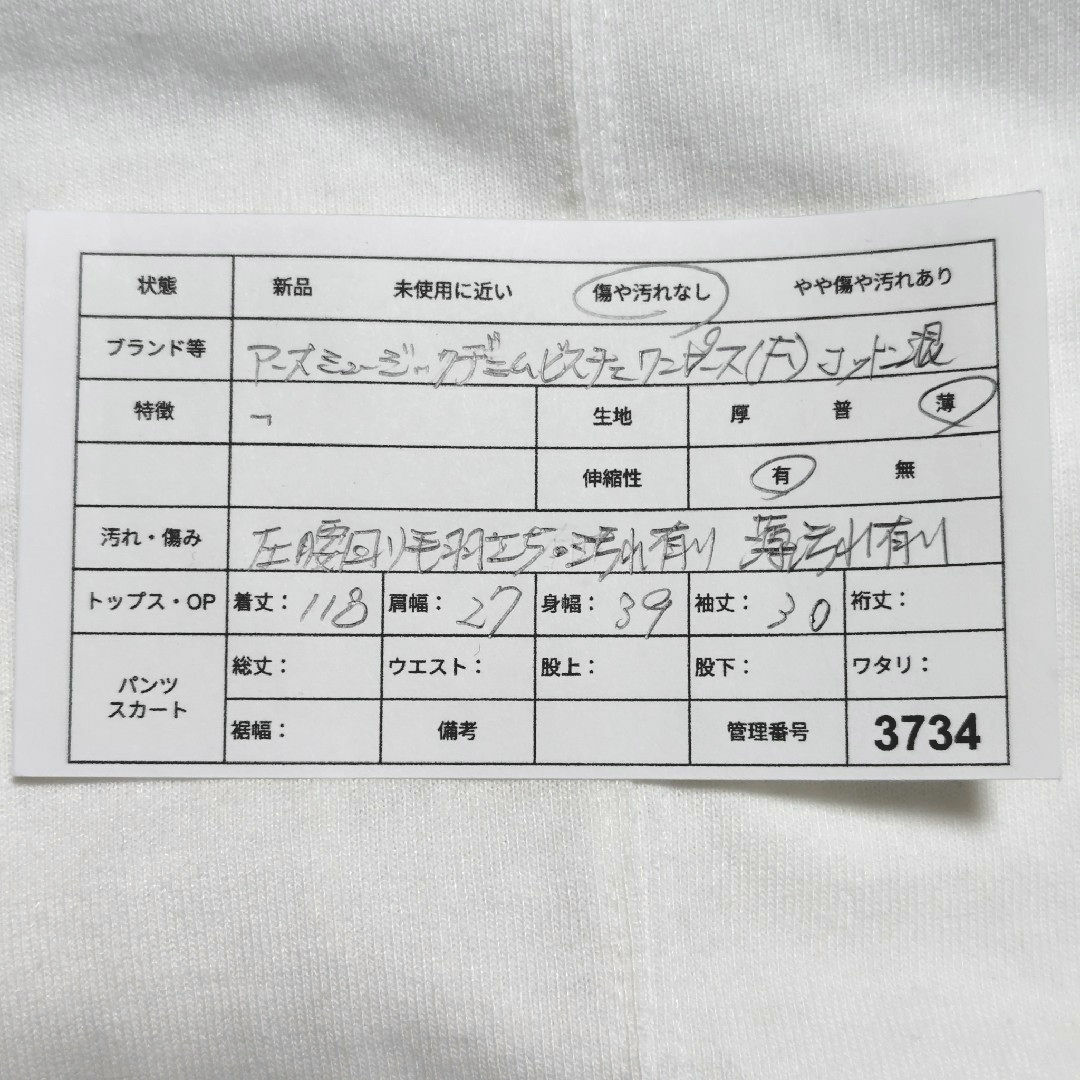 状態 新品 未使用に近い 傷や汚れなし やや傷や汚れあり
ブランド等 アースミュージックデニムビスチェワンピース(F) コットン混
特徴 生地 厚 普 薄
伸縮性 有 無
汚れ・傷み 左腰回り毛羽立ち・汚れ有り 薄汚れ有り
トップス・OP 着丈: 118 肩幅: 27 身幅: 39 袖丈: 30 裄丈:
パンツ スカート 総丈: ウエスト: 股上: 股下: ワタリ:
裾幅: 備考 管理番号 3734